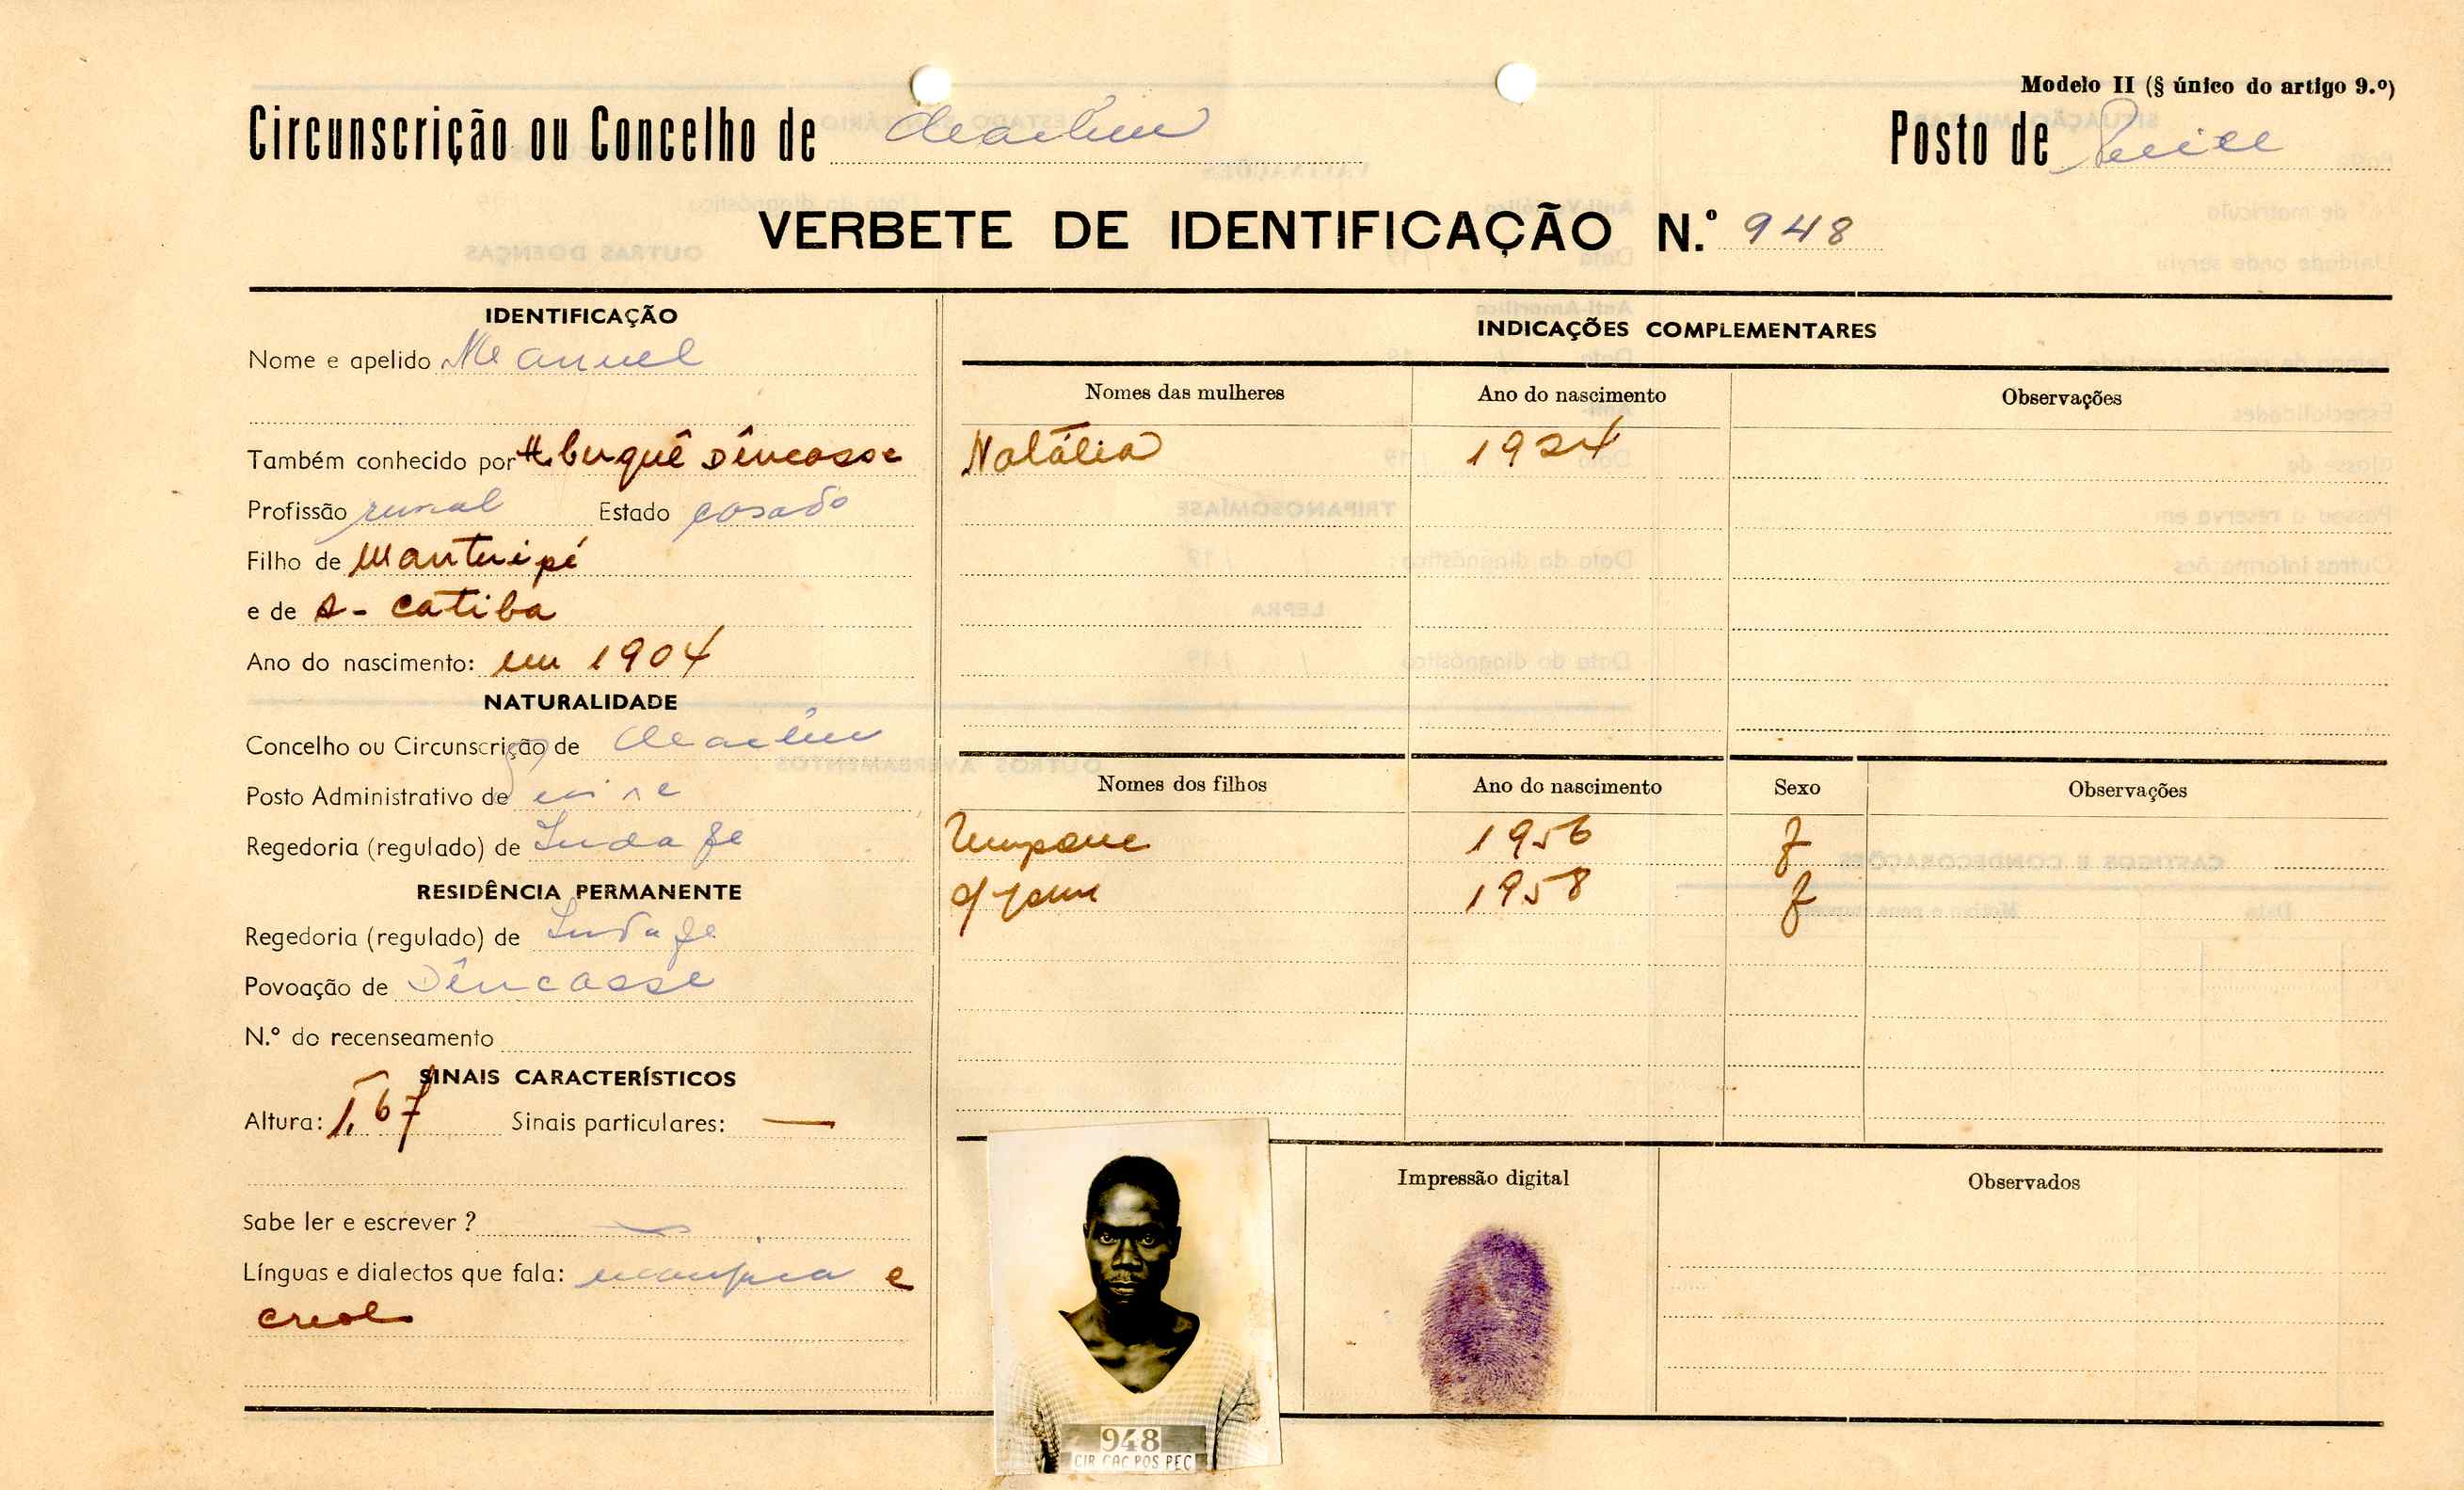 Modelo II (§ único do artigo 9.º)
Circunscrição ou Concelho de Cacheu Posto de
VERBETE DE IDENTIFICAÇÃO N.º 948
IDENTIFICAÇÃO
Nome e apelido Manuel
Também conhecido por Dêncasse
Profissão rural Estado casado
Filho de Mantuipé
e de A- catiba
Ano do nascimento: em 1904
NATURALIDADE
Concelho ou Circunscrição de Cacheu
Posto Administrativo de
Regedoria (regulado) de
RESIDÊNCIA PERMANENTE
Regedoria (regulado) de
Povoação de Dêncasse
N.º do recenseamento
SINAIS CARACTERÍSTICOS
Altura: 1,67 Sinais particulares: —
Sabe ler e escrever ? —
Línguas e dialectos que fala: e
creol
INDICAÇÕES COMPLEMENTARES
Nomes das mulheres Ano do nascimento Observações
Natália 1924
Nomes dos filhos Ano do nascimento Sexo Observações
1956 f
1958 f
Impressão digital
Observados
948
CIR CAC POS PEC